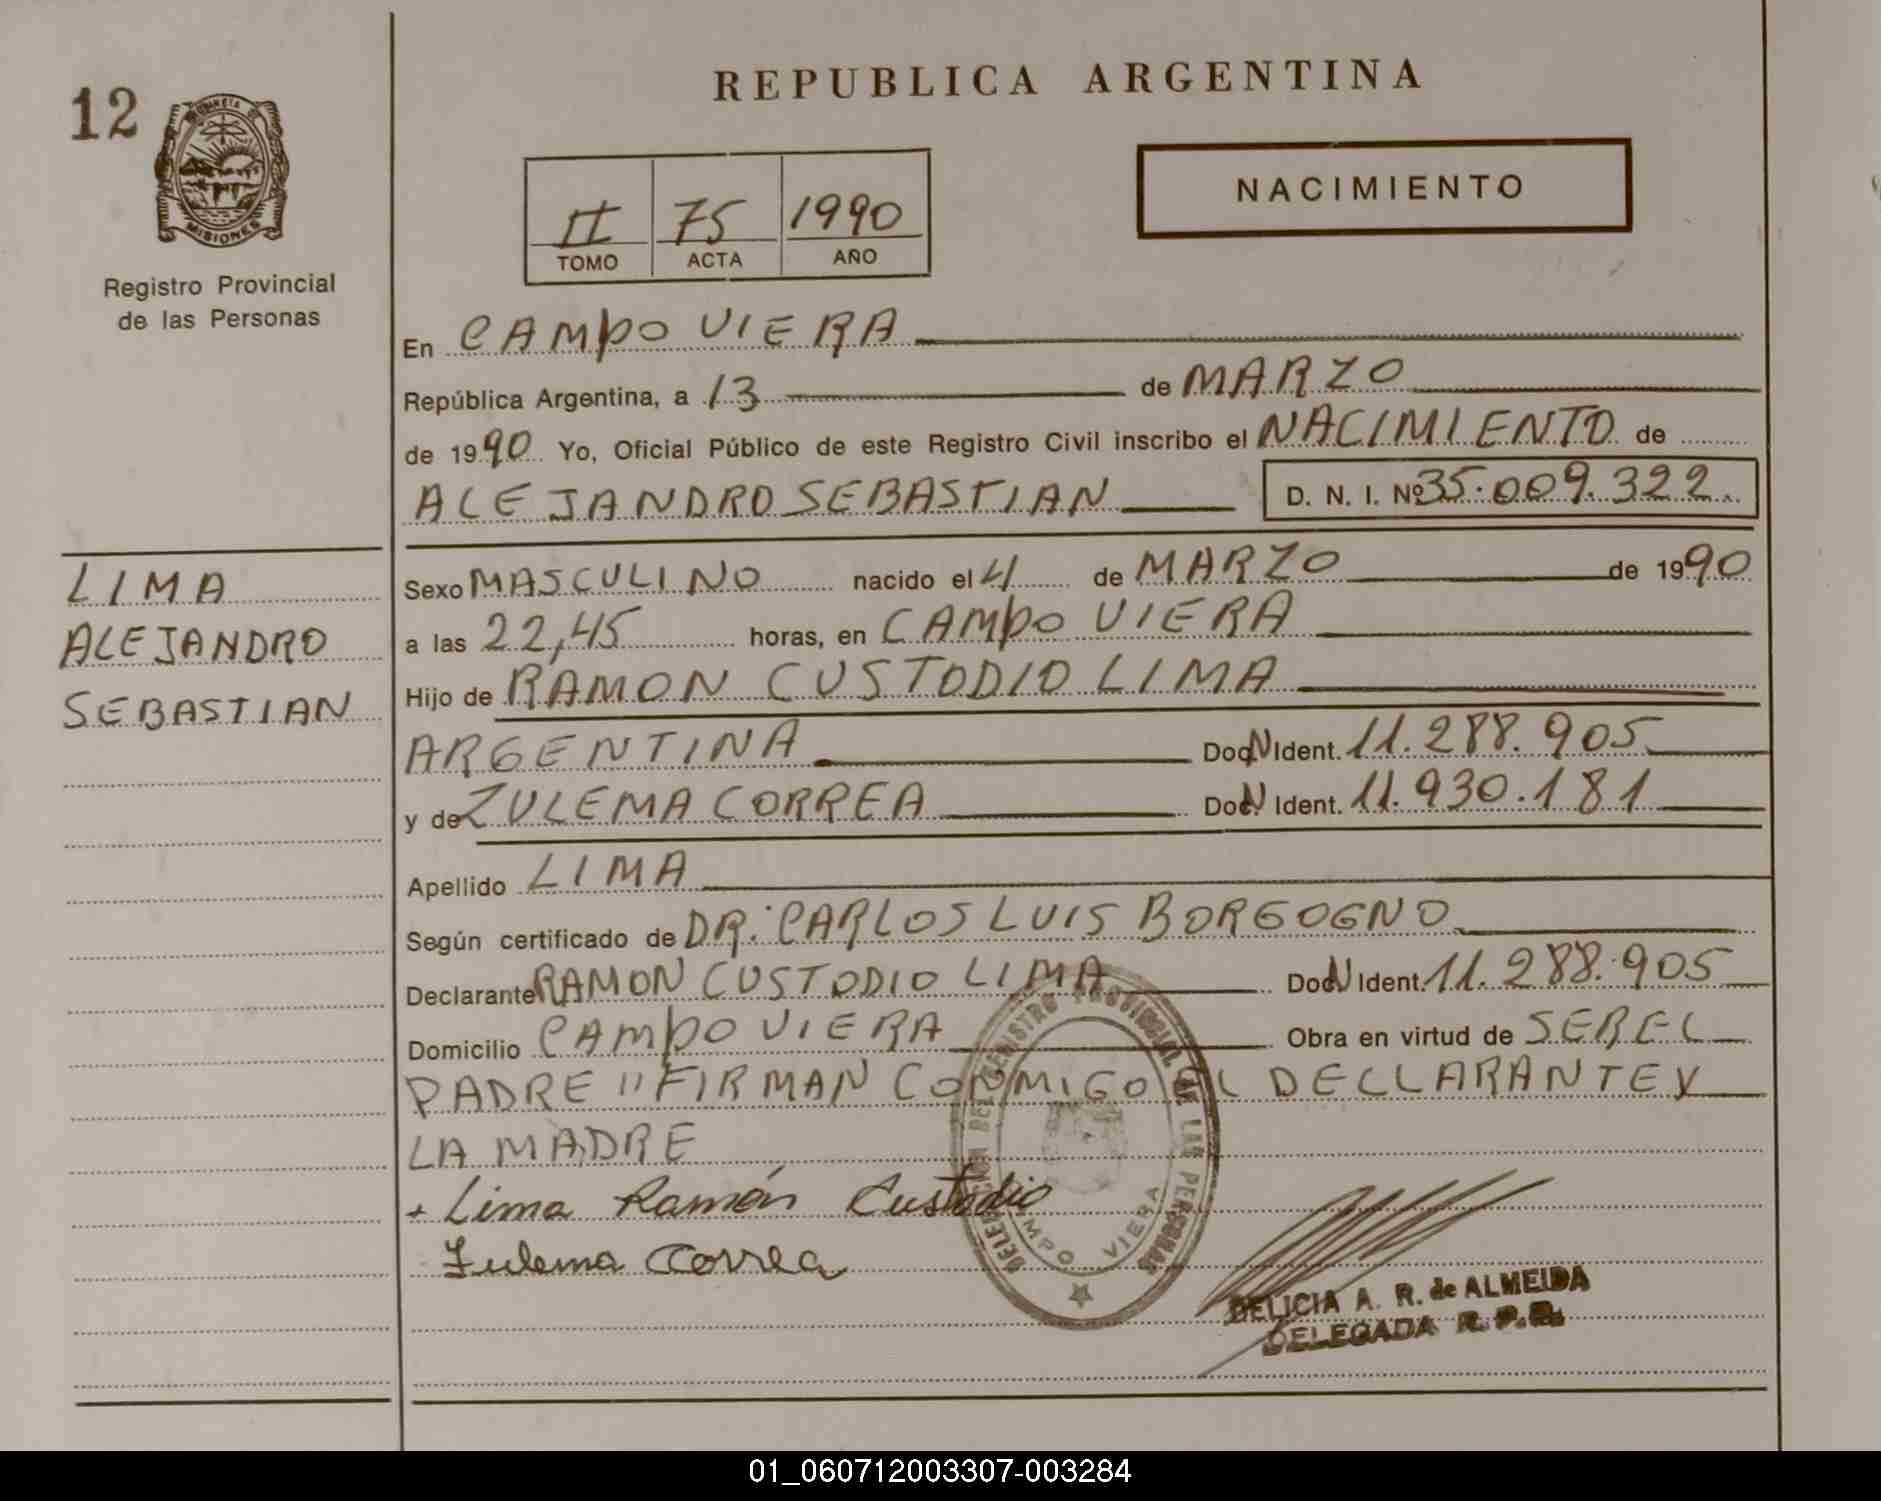 12
REPUBLICA ARGENTINA
MISIONES
NACIMIENTO
II 75 1990
TOMO ACTA AÑO
Registro Provincial
de las Personas
En CAMPO VIERA
República Argentina, a 13 de MARZO
de 1990 Yo, Oficial Público de este Registro Civil inscribo el NACIMIENTO de
ALEJANDRO SEBASTIAN D. N. I. Nº 35.009.322
LIMA
ALEJANDRO
SEBASTIAN
Sexo MASCULINO nacido el 4 de MARZO de 1990
a las 22,45 horas, en CAMPO VIERA
Hijo de RAMON CUSTODIO LIMA
ARGENTINA Doc N Ident. 11.288.905
y de ZULEMA CORREA Doc N Ident. 11.930.181
Apellido LIMA
Según certificado de DR. CARLOS LUIS BORGOGNO
Declarante RAMON CUSTODIO LIMA Doc N Ident. 11.288.905
Domicilio CAMPO VIERA Obra en virtud de SER EL
PADRE "FIRMAN CONMIGO EL DECLARANTE Y
LA MADRE
Lima Ramón Custodio
Zulema Correa
DELEGACION DEL REGISTRO PROVINCIAL DE LAS PERSONAS
CAMPO VIERA
DELICIA A. R. de ALMEIDA
DELEGADA R. P. P.
01_060712003307-003284